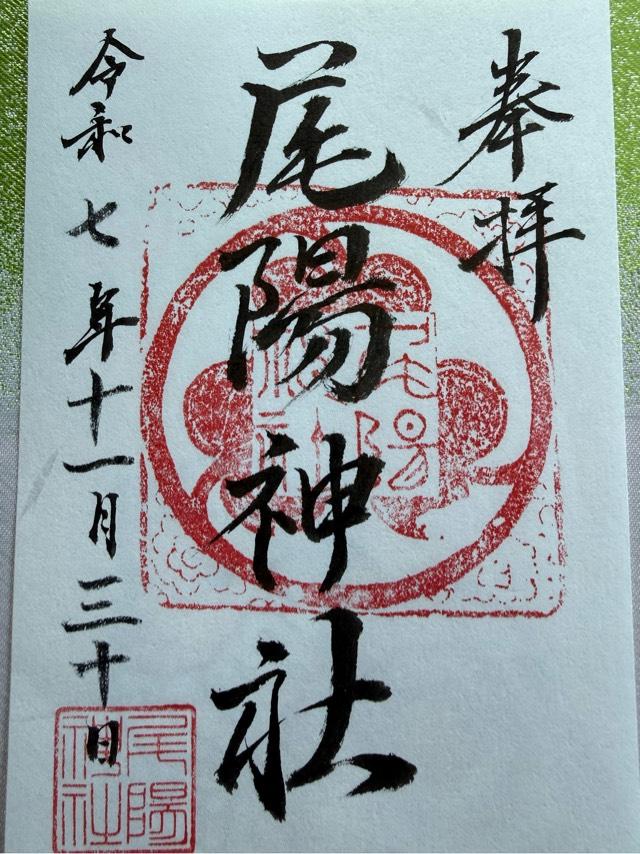 奉拝
尾陽神社
尾陽
神社
令和七年十一月三十日
尾陽
神社